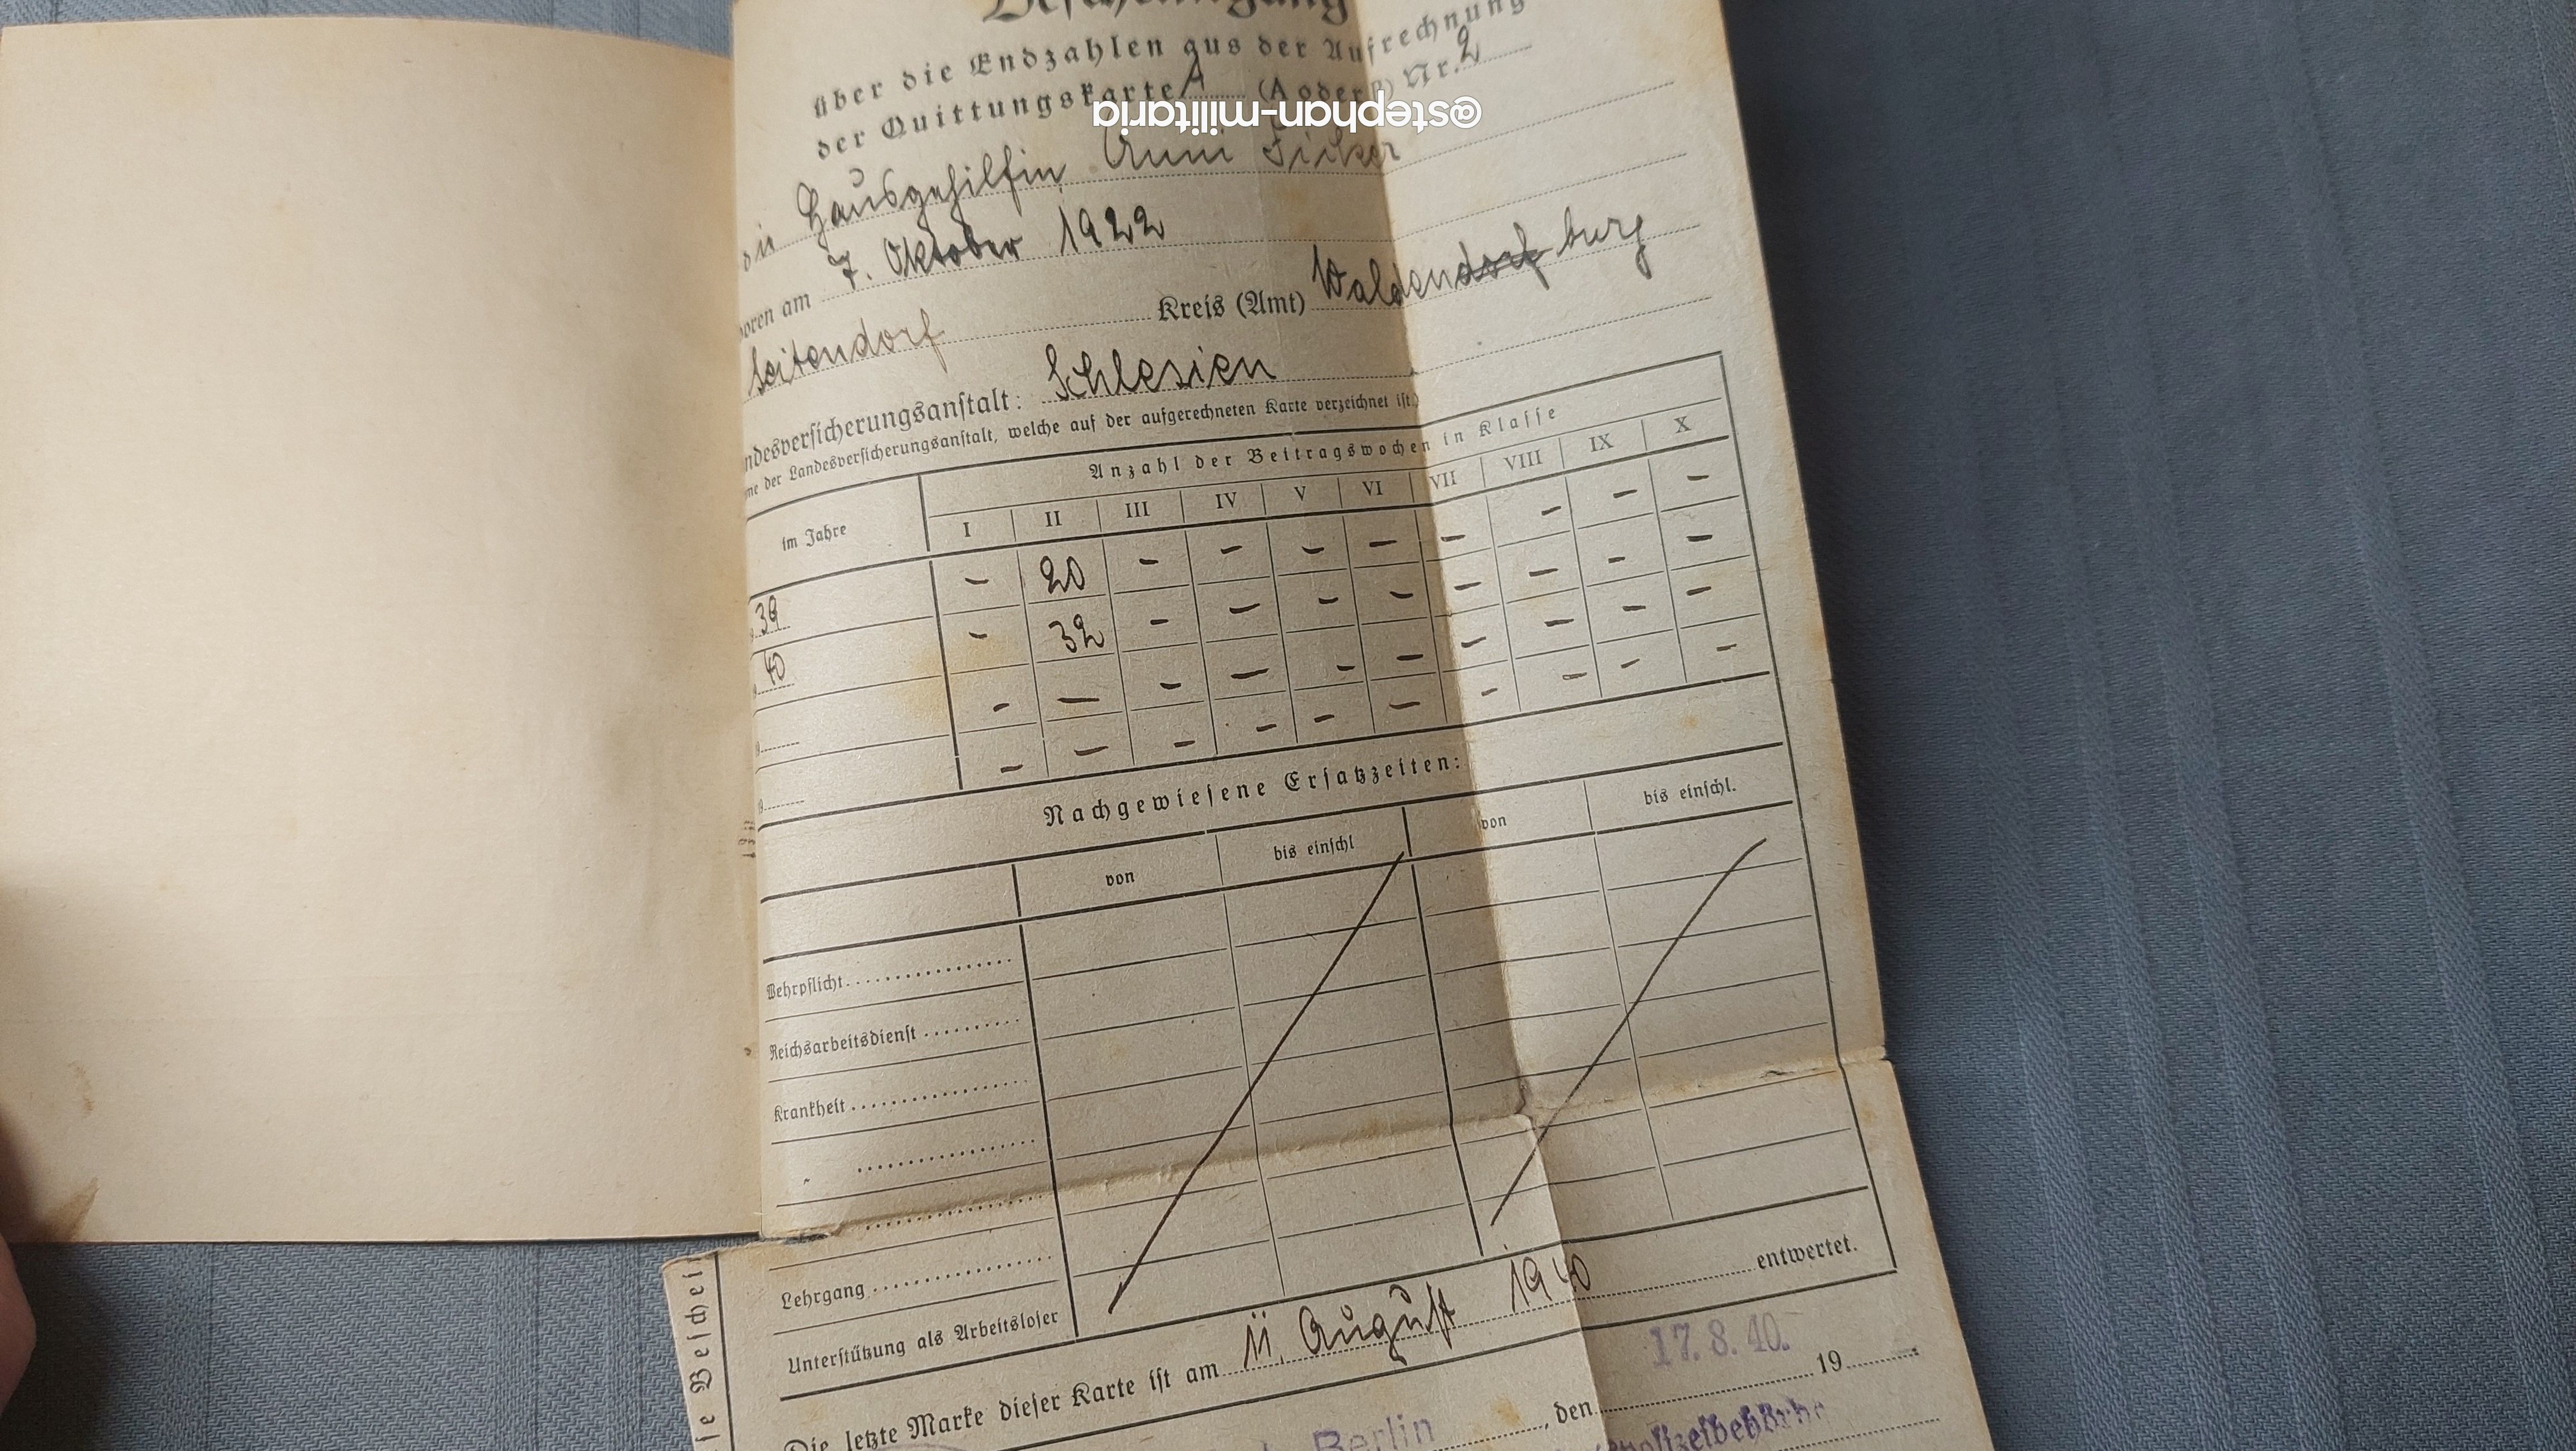 Bescheinigung
über die Endzahlen aus der Aufrechnung
der Quittungskarte A (A oder B) Nr. 2
@stephan-militaria
die Hausgehilfin Anni Ficker
boren am 7. Oktober 1922
Seitendorf Kreis (Amt) Waldendorf burg
ndesversicherungsanstalt: Schlesien
me der Landesversicherungsanstalt, welche auf der aufgerechneten Karte verzeichnet ist.)
im Jahre Anzahl der Beitragswochen in Klasse
I II III IV V VI VII VIII IX X
39 – 20 – – – – – – – –
40 – 32 – – – – – – – –
– – – – – – – – – –
19 – – – – – – – – – –
Nachgewiesene Ersatzzeiten:
von bis einschl von bis einschl.
Wehrpflicht
Reichsarbeitsdienst
Krankheit
"
Lehrgang
Unterstützung als Arbeitsloser
Die letzte Marke dieser Karte ist am 11. August 1940 entwertet.
Berlin, den 17. 8. 40. 19
polizeibehörde
se Beschei